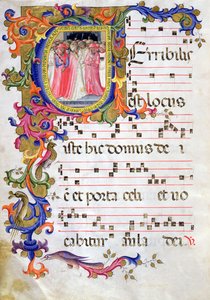 TErribilis
est locus
iste hic domus de i
ē et porta celi et uo
cabitur aula dei. V